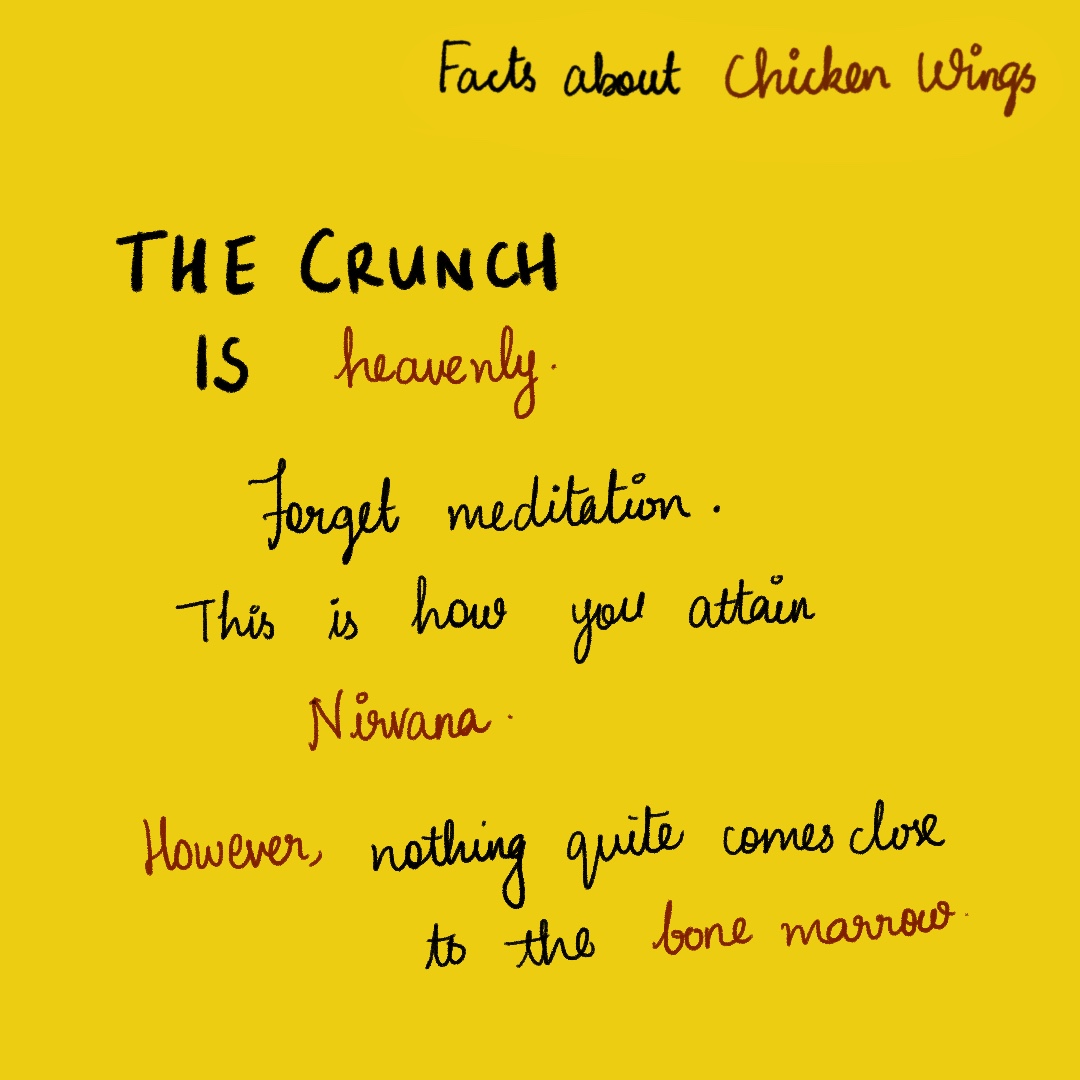 Facts about Chicken Wings
THE CRUNCH
IS heavenly.
Forget meditation.
This is how you attain
Nirvana.
However, nothing quite comes close
to the bone marrow.